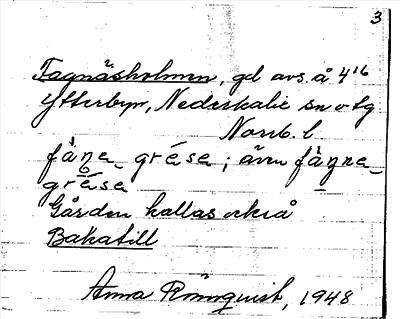 3
Fagnäsholmen, gd avs. å 4¹⁶
Ytterbyn, Nederkalix sn o tg
Norrb. l.
gräsa
Gården kallas också
Bakatill
Anna Rönnquist, 1948